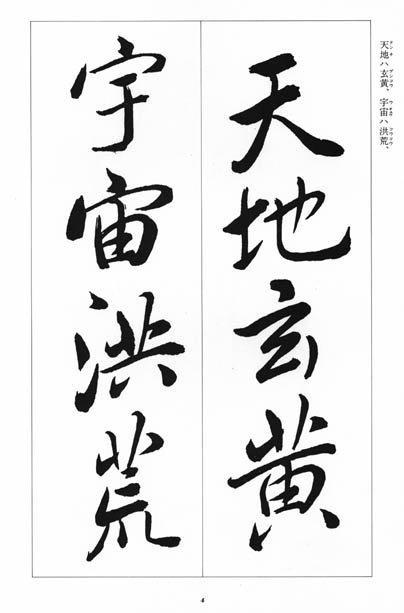 天地ハ玄黄、宇宙ハ洪荒、
天地玄黄
宇宙洪荒
4